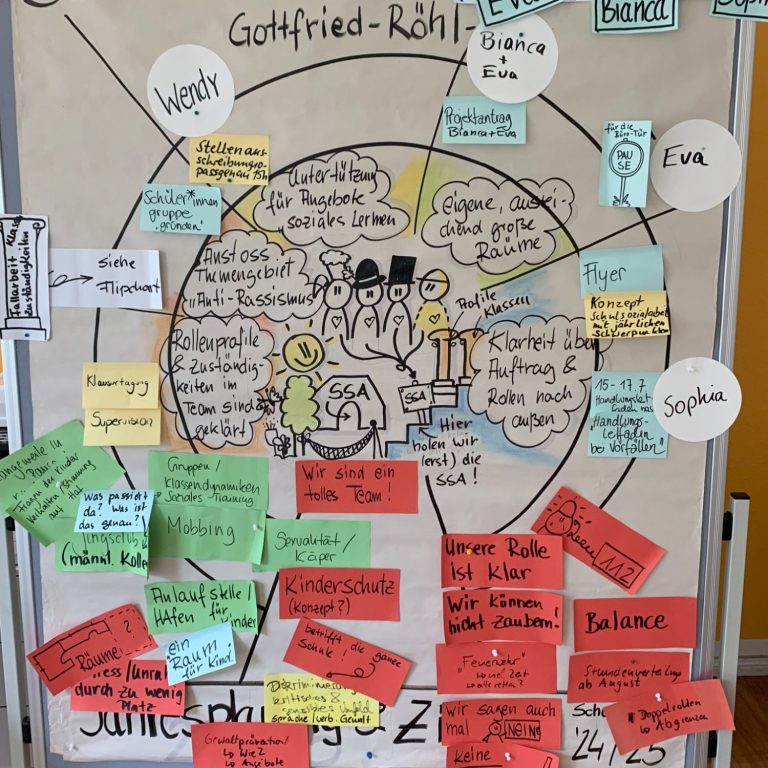 Eva
Bianca
Gottfried-Röhl-
Bianca
+
Eva
Wendy
Projektantrag
Bianca+Eva
für die
Büro-Tür
PAU
SE
Eva
Stellenaus-
schreibung
passgenau
Schüler*innen
gruppe
"gründen"
Unterstützung
für Angebote
"soziales Lernen
eigene, ausrei-
chend große
Räume
Fallarbeit Klare
Zuständigkeiten
siehe
Flipchart
Anstoss
Themengebiet
"Anti-Rassismus
Profile
Klassen
Flyer
Konzept
Schulsozialarbeit
mit jährlichen
Schwerpunkten
Rollenprofile
& Zuständig-
keiten im
Team sind
geklärt
Klarheit über
Auftrag &
Rollen nach
außen
SSA
SSA
Hier
holen wir
(erst) die
SSA!
Klausurtagung
Supervision
15.-17.7.
Handlungs-
Leitfaden
bei Vorfällen"
Sophia
Gruppen/
Klassendynamiken
Soziales-Training
Mobbing
was passiert
da? was ist
das genau?!
(männl. Kolle
Wir sind ein
tolles Team!
Sexualität/
Körper
Kinderschutz
(Konzept?)
betrifft die ganze
Schule!
Anlaufstelle/
Hafen für
Kinder
ein
Raum
für Kind.
Räume
?
durch zu wenig
Platz
Diskriminierungs
kritisches &
sensibles Umfeld
sprache verb. Gewalt
Gewaltprävention/
↳ Wie?
↳ Angebote
Unsere Rolle
ist klar
112
Wir können
nicht zaubern!
Balance
"Feuerwehr"
↳ wie viel Zeit
Stundenverteilung
ab August
wir sagen auch
mal NEIN
Doppelrollen
↳ Abgrenzen
keine
Jahresplanung & Z
Sch
'24/25